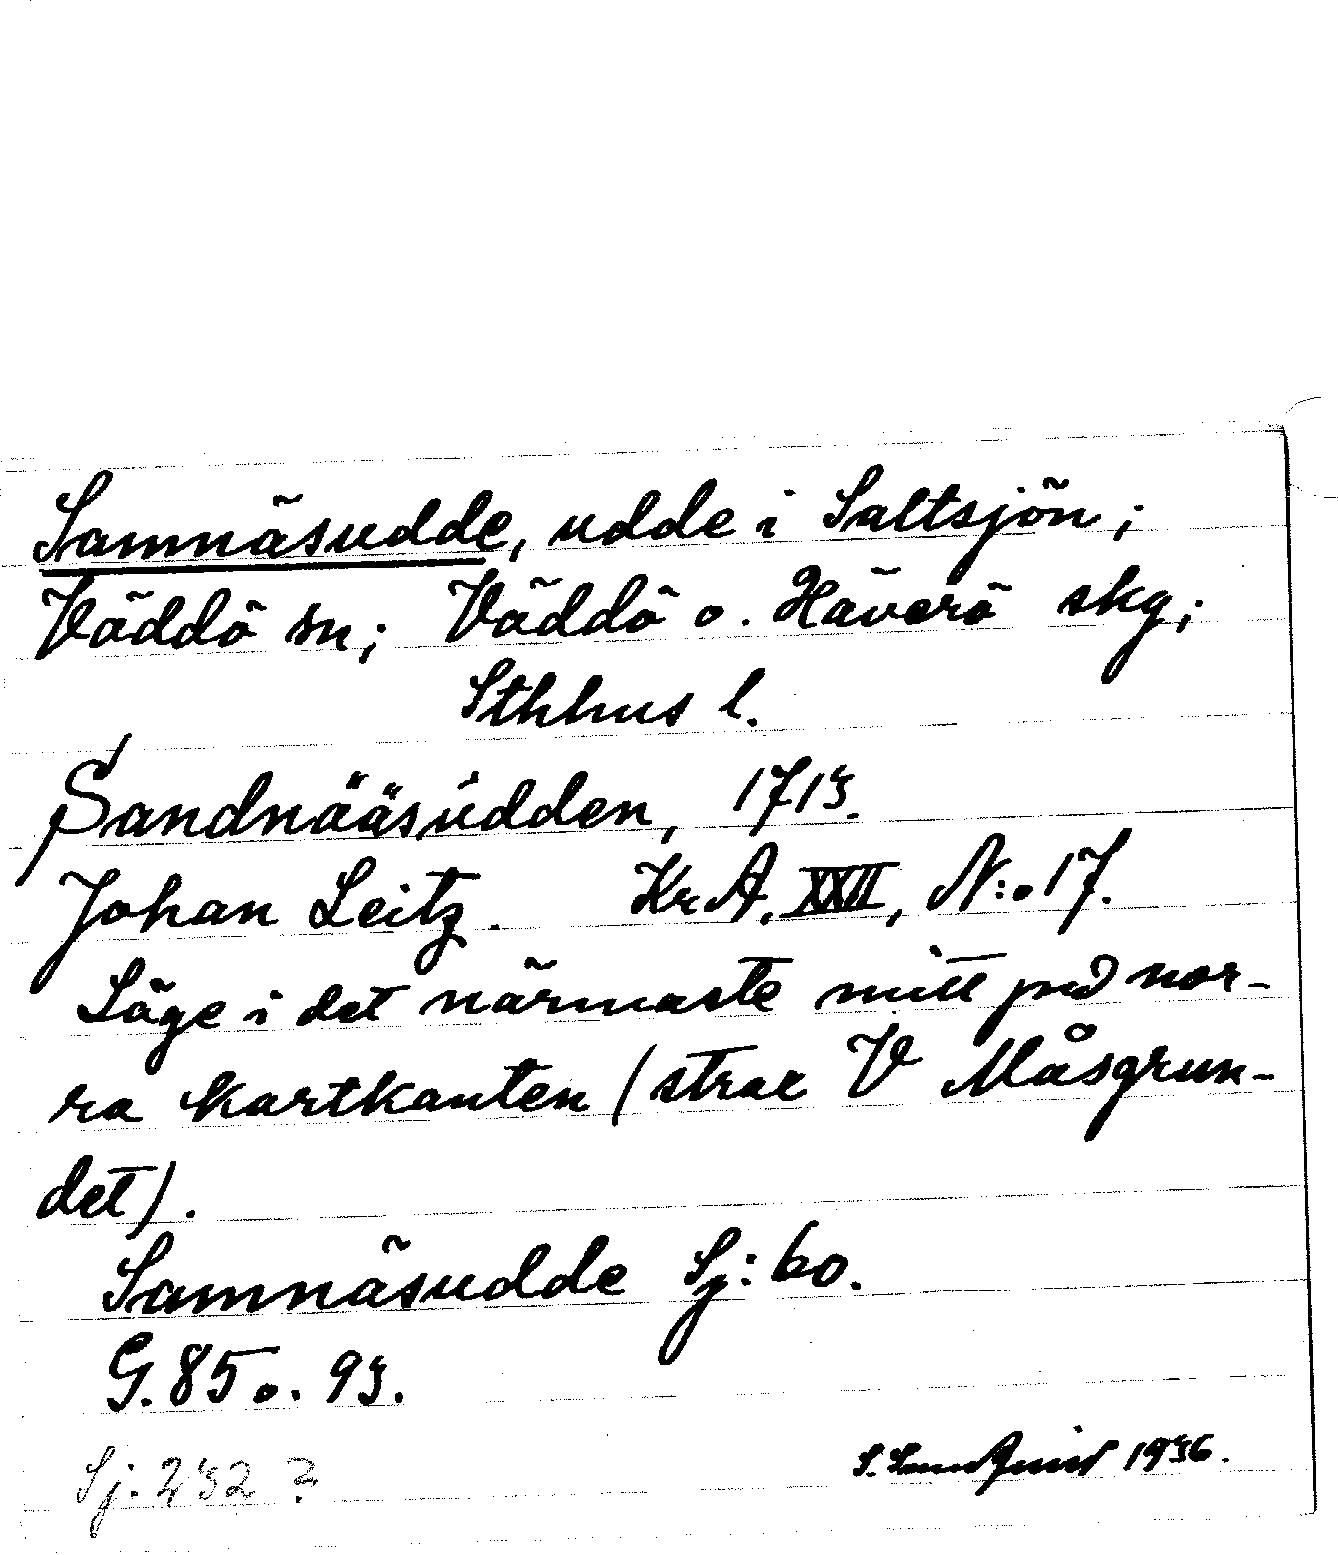 Samnäsudde, udde i Saltsjön;
Väddö sn; Väddö o. Häverö skg;
Sthhus l.
Sandnääsudden, 1713.
Johan Leitz. Kr A. XXII, N:o 17.
Läge i det närmaste mitt på nor-
ra kartkanten (strax V Måsgrun-
det).
Samnäsudde Sj: 60.
G. 85 o. 93.
Sj. 232 ?
S. 1936.